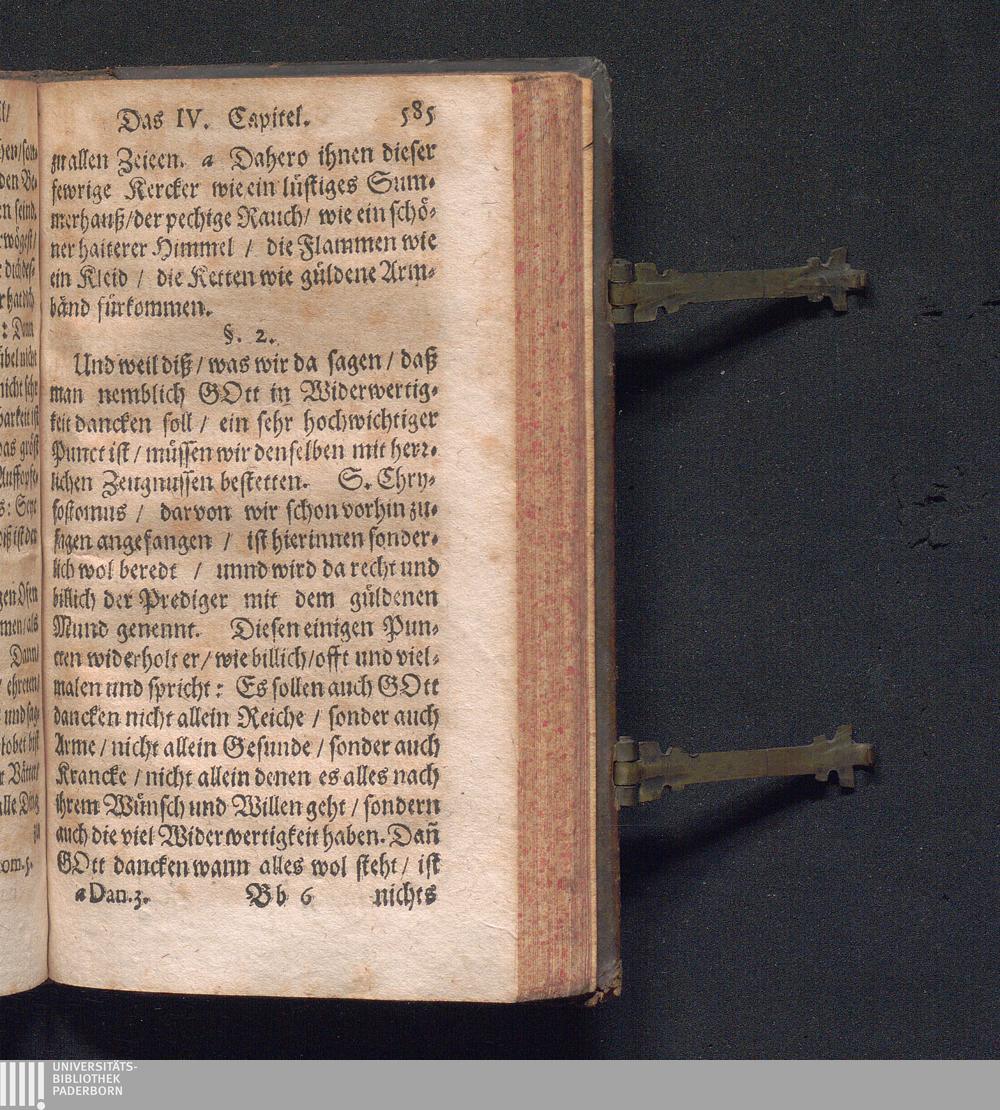 Das IV. Capitel. 585
zu allen Zeiten. a Dahero ihnen dieser
fewrige Kercker wie ein lüstiges Sum-
merhauß/der pechige Rauch/ wie ein schö-
ner haiterer Himmel / die Flammen wie
ein Kleid / die Ketten wie güldene Arm-
bänd fürkommen.
§. 2.
Und weil diß / was wir da sagen / daß
man nemblich GOtt in Widerwertig-
keit dancken soll / ein sehr hochwichtiger
Punct ist / müssen wir denselben mit herr-
lichen Zeugnussen bestetten. S. Chry-
sostomus / darvon wir schon vorhin zu-
sagen angefangen / ist hierinnen sonder-
lich wol beredt / unnd wird da recht und
billich der Prediger mit dem güldenen
Mund genennt. Diesen einigen Pun-
cten widerholt er/ wie billich/offt und viel-
malen und spricht: Es sollen auch GOtt
dancken nicht allein Reiche / sonder auch
Arme / nicht allein Gesunde / sonder auch
Krancke / nicht allein denen es alles nach
ihrem Wünsch und Willen geht / sondern
auch die viel Widerwertigkeit haben. Dañ
GOtt dancken wann alles wol steht / ist
a Dan. 3. Bb 6 nichts
UNIVERSITÄTS-
BIBLIOTHEK
PADERBORN